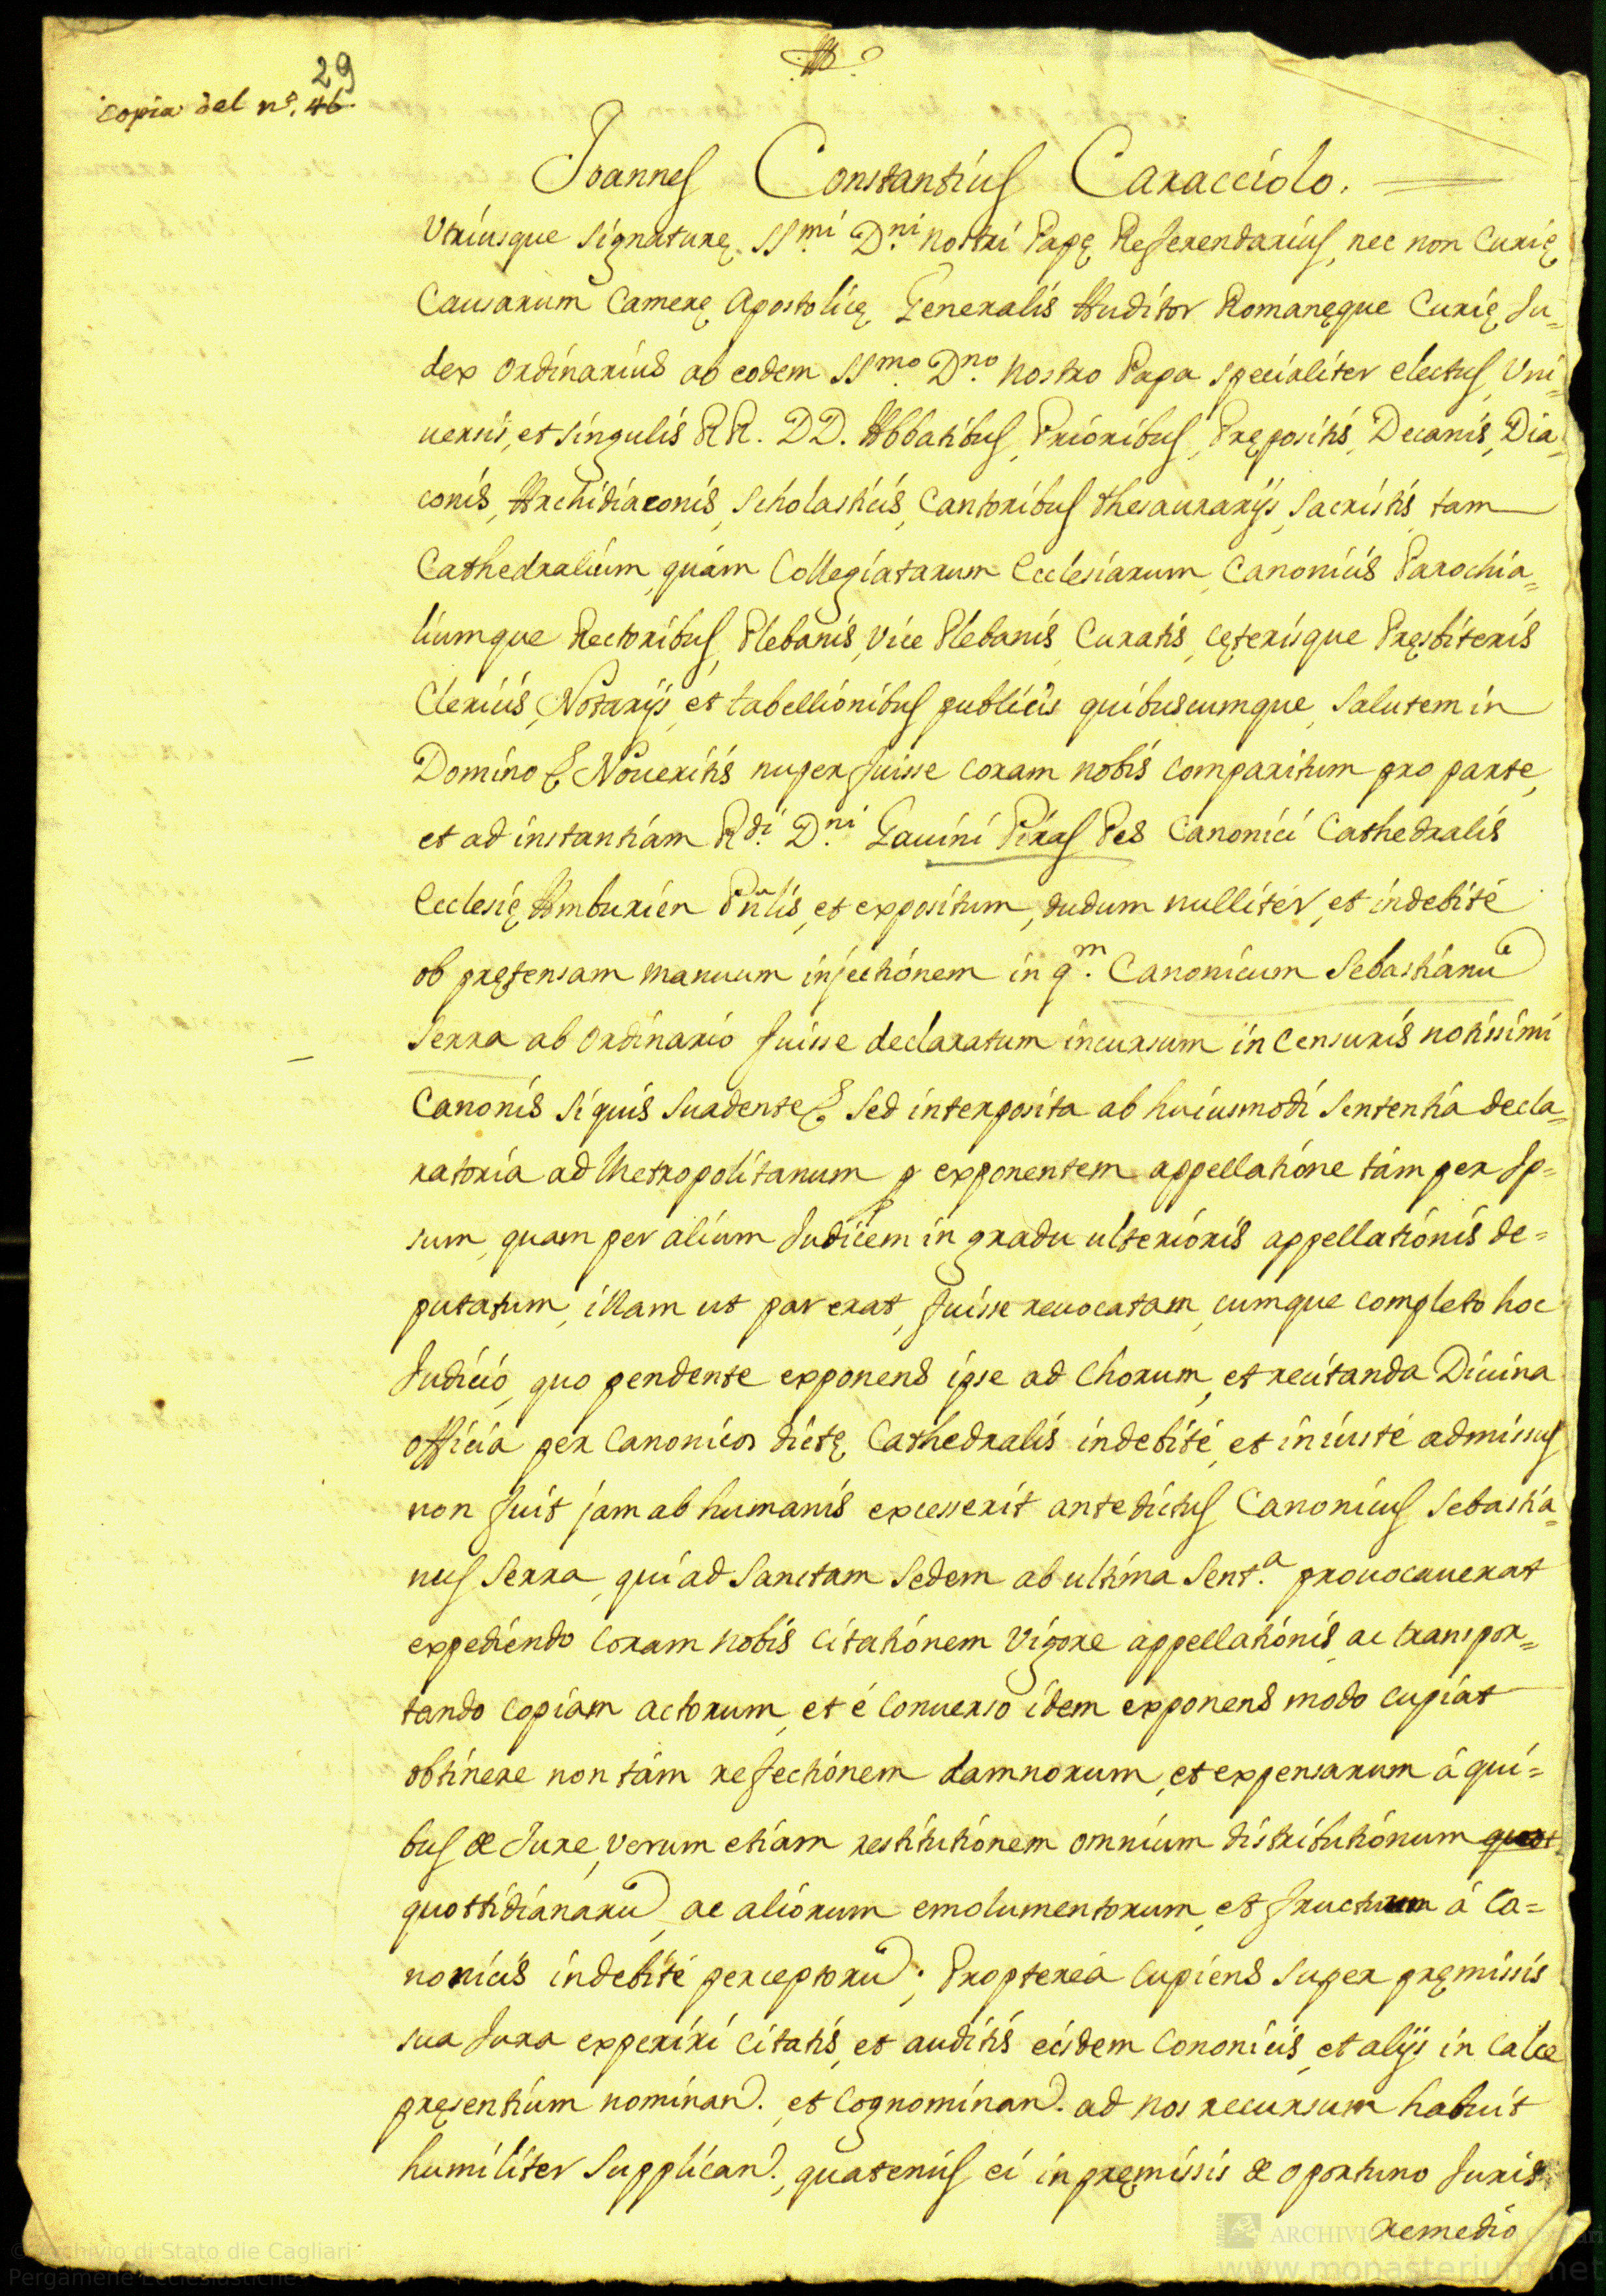 29
Copia del nº. 46
Joannes Constantius Caracciolo.
Utriusque signaturę SS.mi D.ni nostri Papę Referendarius, nec non Curię
Causarum Camerę Apostolicę Generalis Auditor Romanęque Curię Ju=
dex Ordinarius ab eodem SS.mo D.no Nostro Papa specialiter electus, Uni=
uersis, et singulis RR. DD. Abbatibus, Prioribus, Prępositis, Decanis, Dia=
conis, Archidiaconis, Scholasticis, Cantoribus thesaurarijs, Sacristis tam
Cathedralium, quám Collegiatarum Ecclesiarum, Canonicis Parochia=
liumque Rectoribus, Plebanis, Vice Plebanis, Curatis, cęterisque Pręsbiteris
Clericis, Notarijs, et tabellionibus publicis quibuscumque, Salutem in
Domino & Noueritis nuper fuisse coram nobis comparitum pro parte,
et ad instantiam R.di D.ni Gauini Piras Pes Canonici Cathedralis
Ecclesię Ampurien Pñlis, et expositum, dudum nullitér, et indebité
ob prętensam manuum injectionem in q.m Canonicum Sebastianũ
Serra ab Ordinario fuisse declaratum incursum in Censuris notissimi
Canonis si quis suadente & sed interposita ab huiusmodi Sententia decla=
ratoria ad Metropolitanum p exponentem appellatione tám per Ip=
sum, quam per alium Judicem in gradu ulterioris appellationis de=
putatum, illam ut par erat, fuisse reuocatam, cumque completo hoc
Judicio, quo pendente exponens ipse ad Chorum, et recitanda Diuina
officia per Canonicos dictę Cathedralis indebité, et iniusté admissus
non fuit jam ab humanis excesserit antedictus Canonicus Sebastia=
nus Serra, qui ad Sanctam Sedem ab ultima Sent.a prouocauerat
expediendo Coram Nobis Citationem Vigore appellationis, ac transpor=
tando Copiam actorum, et é Conuerso idem exponens modo cupiat
obtinere non tám refectionem damnorum, et expensarum á qui=
bus de Jure, Verum etiam restitutionem omnium distributionum quot
quottidianarũ, ac aliorum emolumentorum, et fructuum á Ca=
nonicis indebité perceptorũ; Proptereá Cupiens Super pręmissis
sua Jura experiri Citatis, et auditis eisdem Cononicis, et alijs in Calce
pręsentium nominan. et Cognominan. ad nos recursum habuit
humiliter Supplican., quatenus ei in pręmissis de oportuno Juris
remedio
© Archivio di Stato die Cagliari
Pergamene Ecclesiastiche
www.monasterium.net